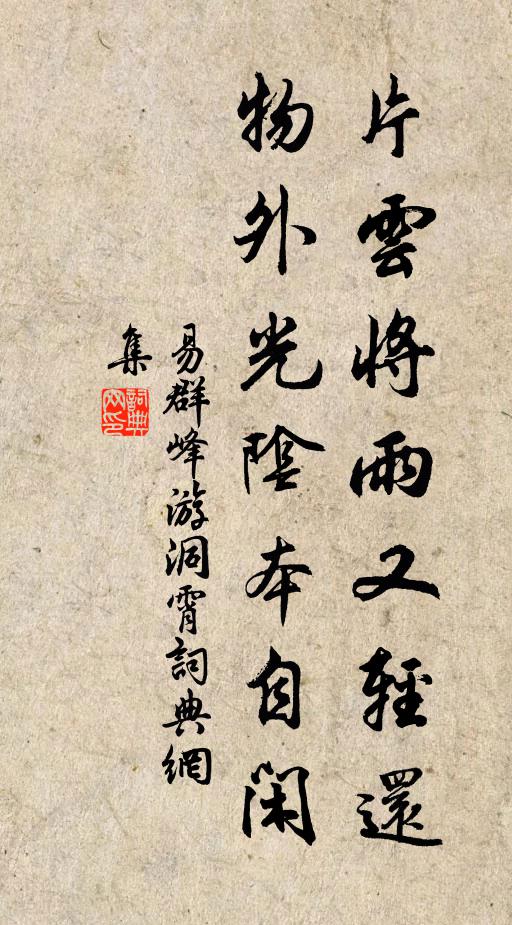 片雲將雨又輕還
物外光陰本自閑
易群峰游洞霄詞典網
集
詞典網印